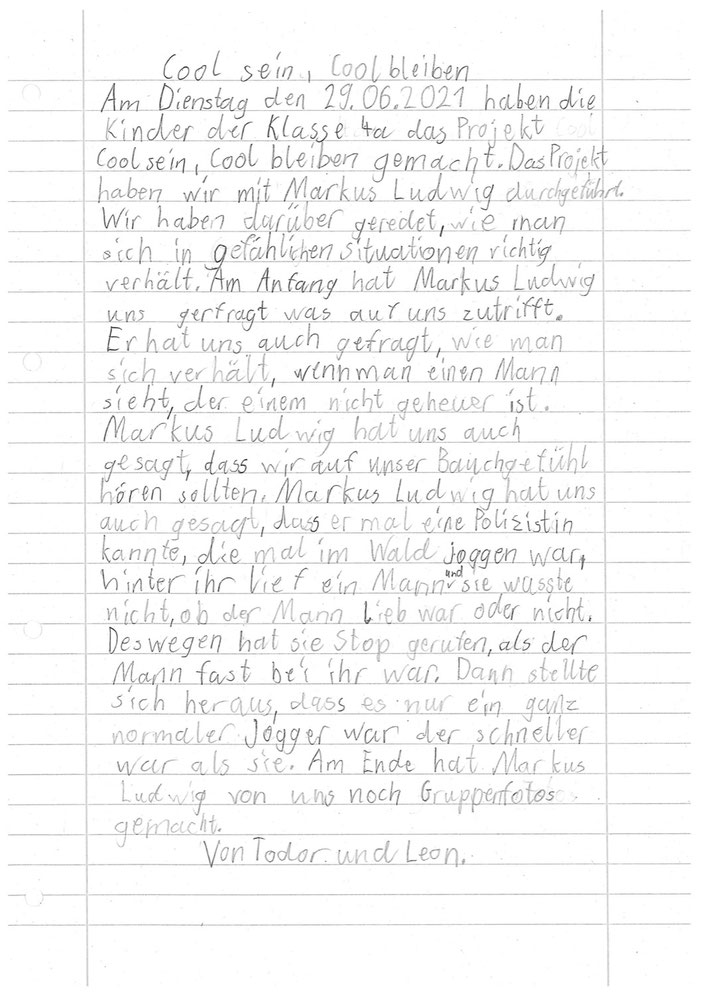 Cool sein, Cool bleiben
Am Dienstag den 29.06.2021 haben die
Kinder der Klasse 4a das Projekt Cool
Cool sein, Cool bleiben gemacht. Das Projekt
haben wir mit Markus Ludwig durchgeführt.
Wir haben darüber geredet, wie man
sich in gefählichen situationen richtig
verhält. Am Anfang hat Markus Ludwig
uns gerfragt was auf uns zutrifft.
Er hat uns auch gefragt, wie man
sich verhält, wenn man einen Mann
sieht, der einem nicht geheuer ist.
Markus Ludwig hat uns auch
gesagt, dass wir auf unser Bauchgefühl
hören sollten. Markus Ludwig hat uns
auch gesagt, dass er mal eine Polizistin
kannte, die mal im Wald joggen war,
hinter ihr lief ein Mann und sie wusste
nicht, ob der Mann Lieb war oder nicht.
Deswegen hat sie Stop gerufen, als der
Mann fast bei ihr war. Dann stellte
sich heraus, dass es nur ein ganz
normaler Jogger war der schneller
war als sie. Am Ende hat Markus
Ludwig von uns noch Gruppenfotos
gemacht.
Von Todor und Leon.